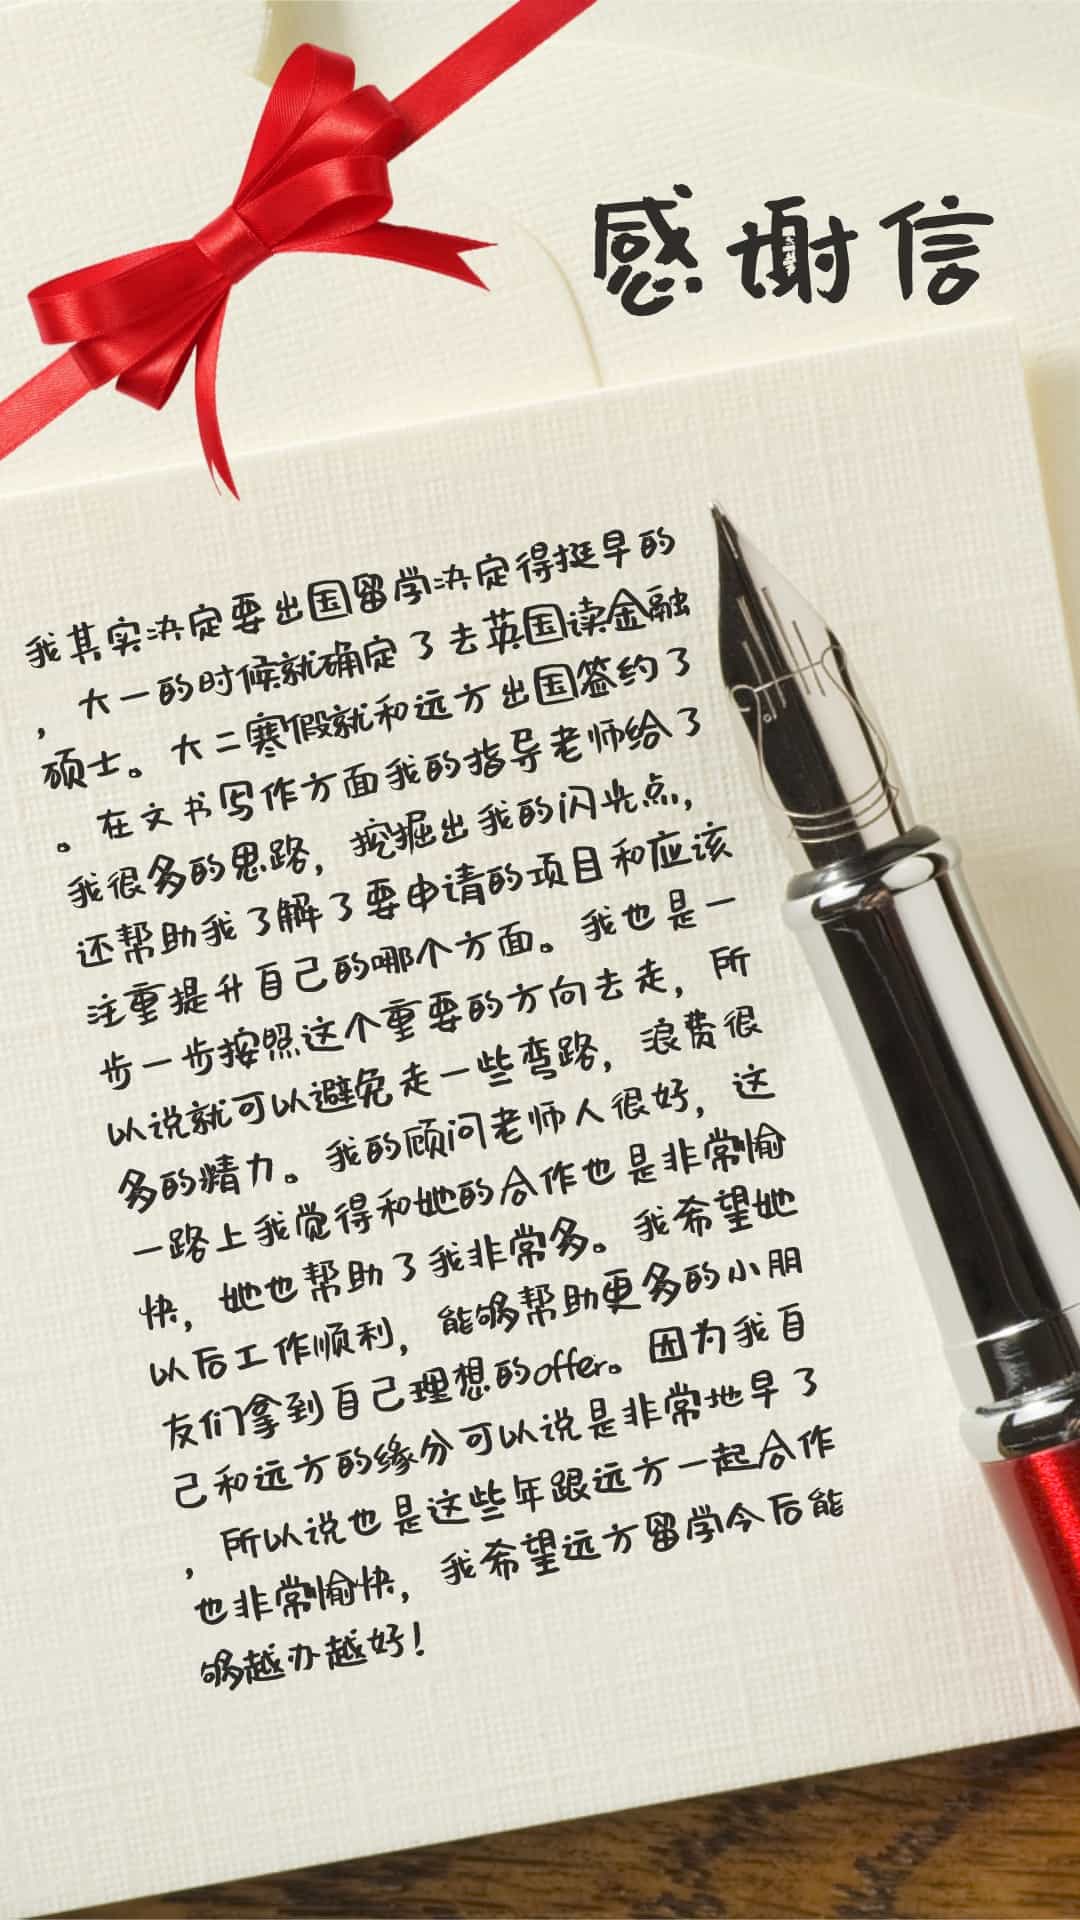 感谢信
我其实决定要出国留学决定得挺早的
，大一的时候就确定了去英国读金融
硕士。大二寒假就和远方出国签约了
。在文书写作方面我的指导老师给了
我很多的思路，挖掘出我的闪光点，
还帮助我了解了要申请的项目和应该
注重提升自己的哪个方面。我也是一
步一步按照这个重要的方向去走，所
以说就可以避免走一些弯路，浪费很
多的精力。我的顾问老师人很好，这
一路上我觉得和她的合作也是非常愉
快，她也帮助了我非常多。我希望她
以后工作顺利，能够帮助更多的小朋
友们拿到自己理想的offer。因为我自
己和远方的缘分可以说是非常地早了
，所以说也是这些年跟远方一起合作
也非常愉快，我希望远方留学今后能
够越办越好！